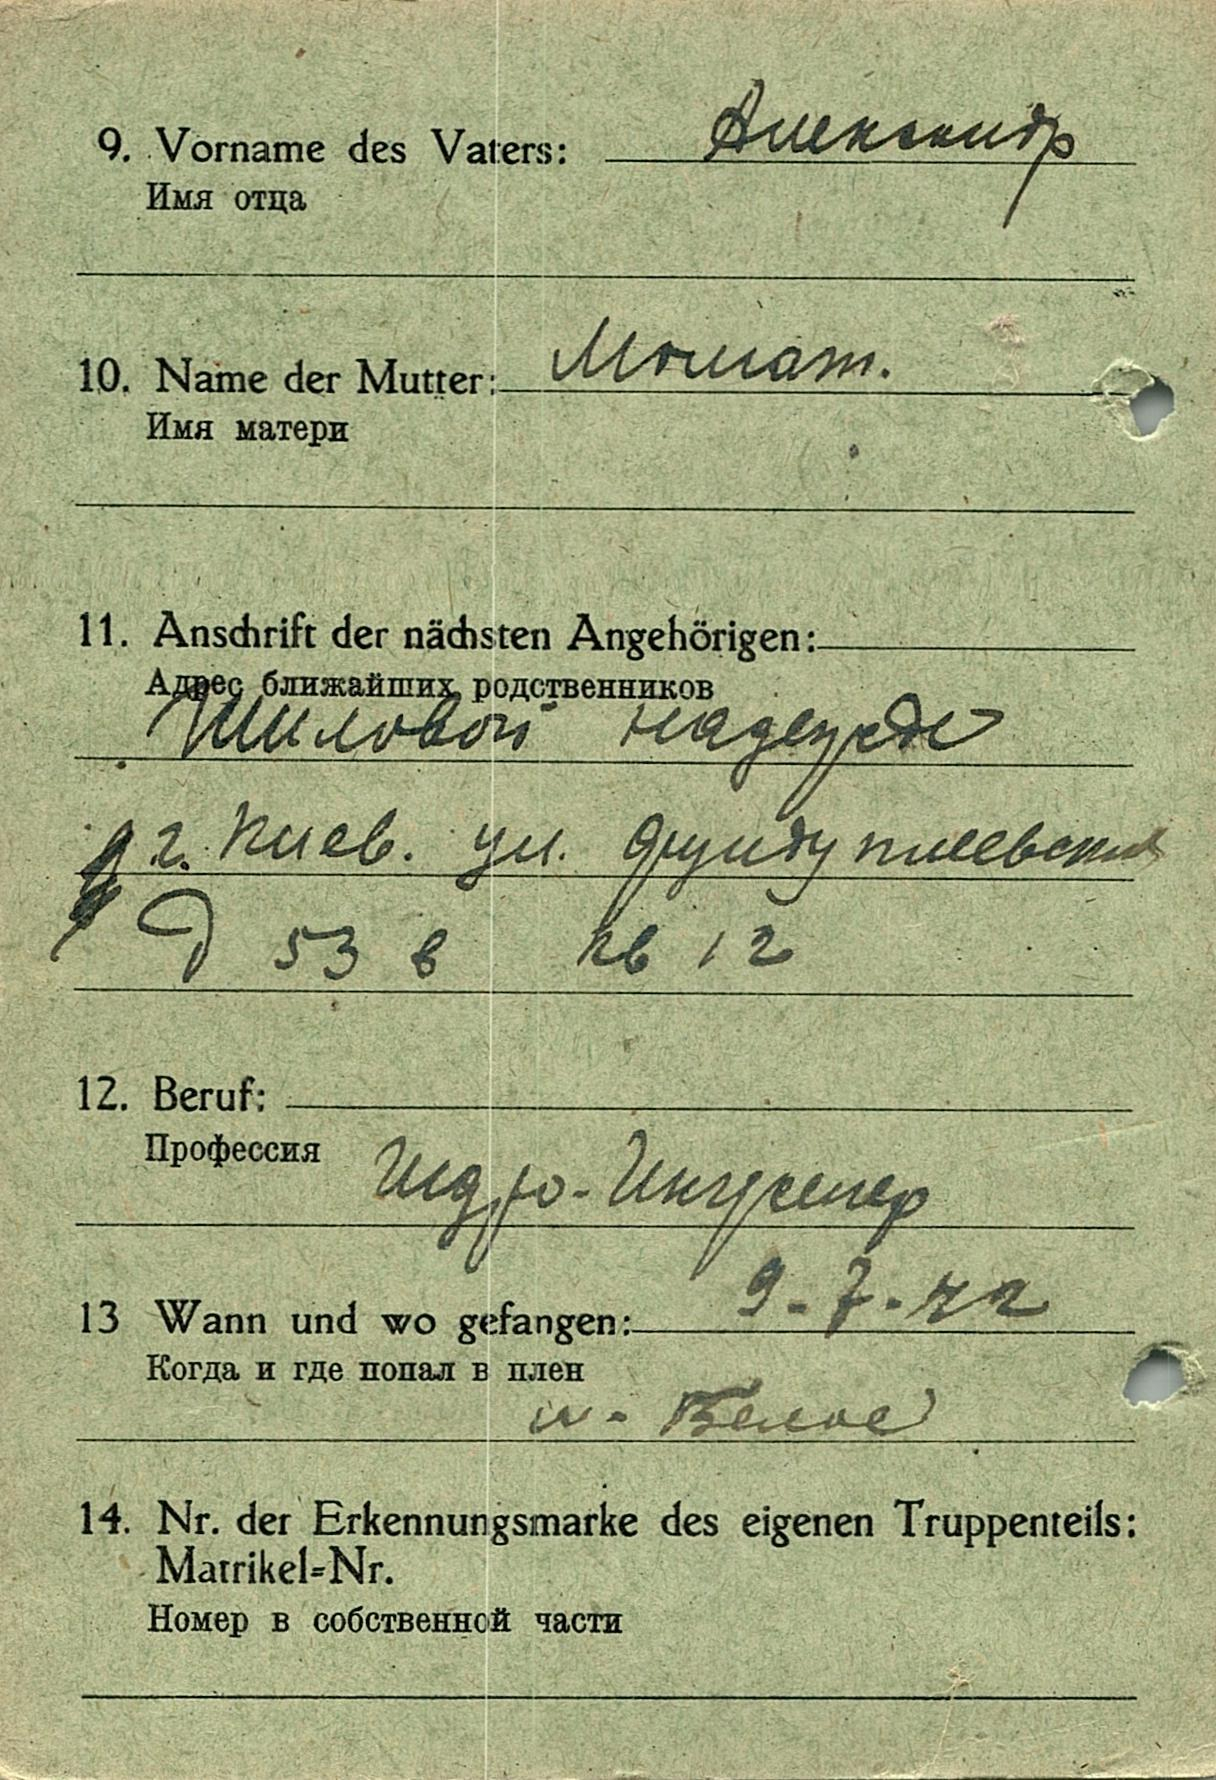 9. Vorname des Vaters: Александр
Имя отца
10. Name der Mutter:
Имя матери
11. Anschrift der nächsten Angehörigen:
Адрес ближайших родственников
Шиловой Надежде
г. Киев. ул.
Д 53 в кв 12
12. Beruf:
Профессия
Гидро-Инженер
13 Wann und wo gefangen: 9-7-42
Когда и где попал в плен
Белое
14. Nr. der Erkennungsmarke des eigenen Truppenteils:
Matrikel=Nr.
Номер в собственной части